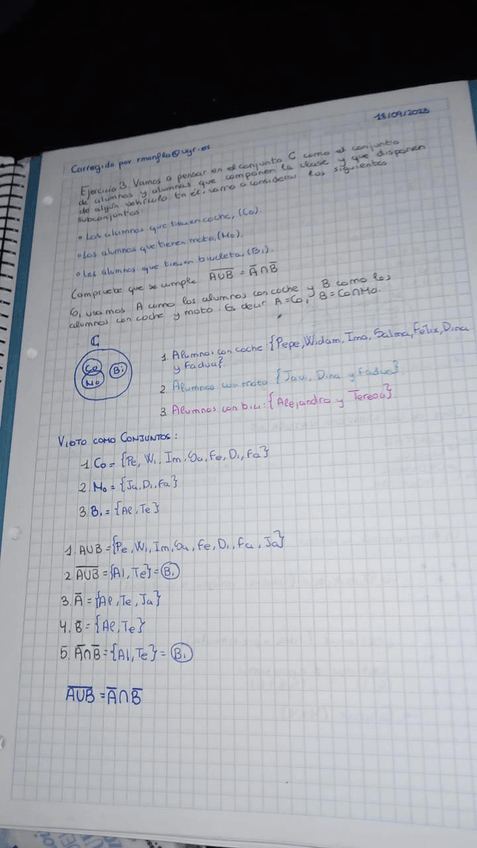 18/09/2023
Corregido por rmanfla@ugr.es
Ejercicio 3. Vamos a pensar en el conjunto C como el conjunto
de alumnos y alumnas que componen la clase y que disponen
de algún vehículo. En él, vamos a considerar los siguientes
subconjuntos:
• Los alumnos que tienen coche, (Co).
• Los alumnos que tienen moto, (Mo).
• Los alumnos que tienen bicicleta, (Bi).
Compruebe que se cumple A∪B = A̅∩B̅
Si, usamos A como los alumnos con coche y B como los
alumnos con coche y moto. Es decir A=Co, B=Co∩Mo.
C
Co
Mo
Bi
1. Alumnos con coche {Pepe, Widam, Ima, Salma, Felix, Dina
y Fadua}
2. Alumnos con moto {Javi, Dina y Fadua}
3. Alumnos con bici: {Alejandra y Teresa}
VISTO COMO CONJUNTOS:
1. Co = {Pe, Wi, Im, Sa, Fe, Di, Fa}
2. Mo = {Ja, Di, Fa}
3. Bi = {Al, Te}
1. A∪B = {Pe, Wi, Im, Sa, Fe, Di, Fa, Ja}
2. A∪B = {Al, Te} = Bi
3. A̅ = {Al, Te, Ja}
4. B̅ = {Al, Te}
5. A̅∩B̅ = {Al, Te} = Bi
A∪B = A̅∩B̅